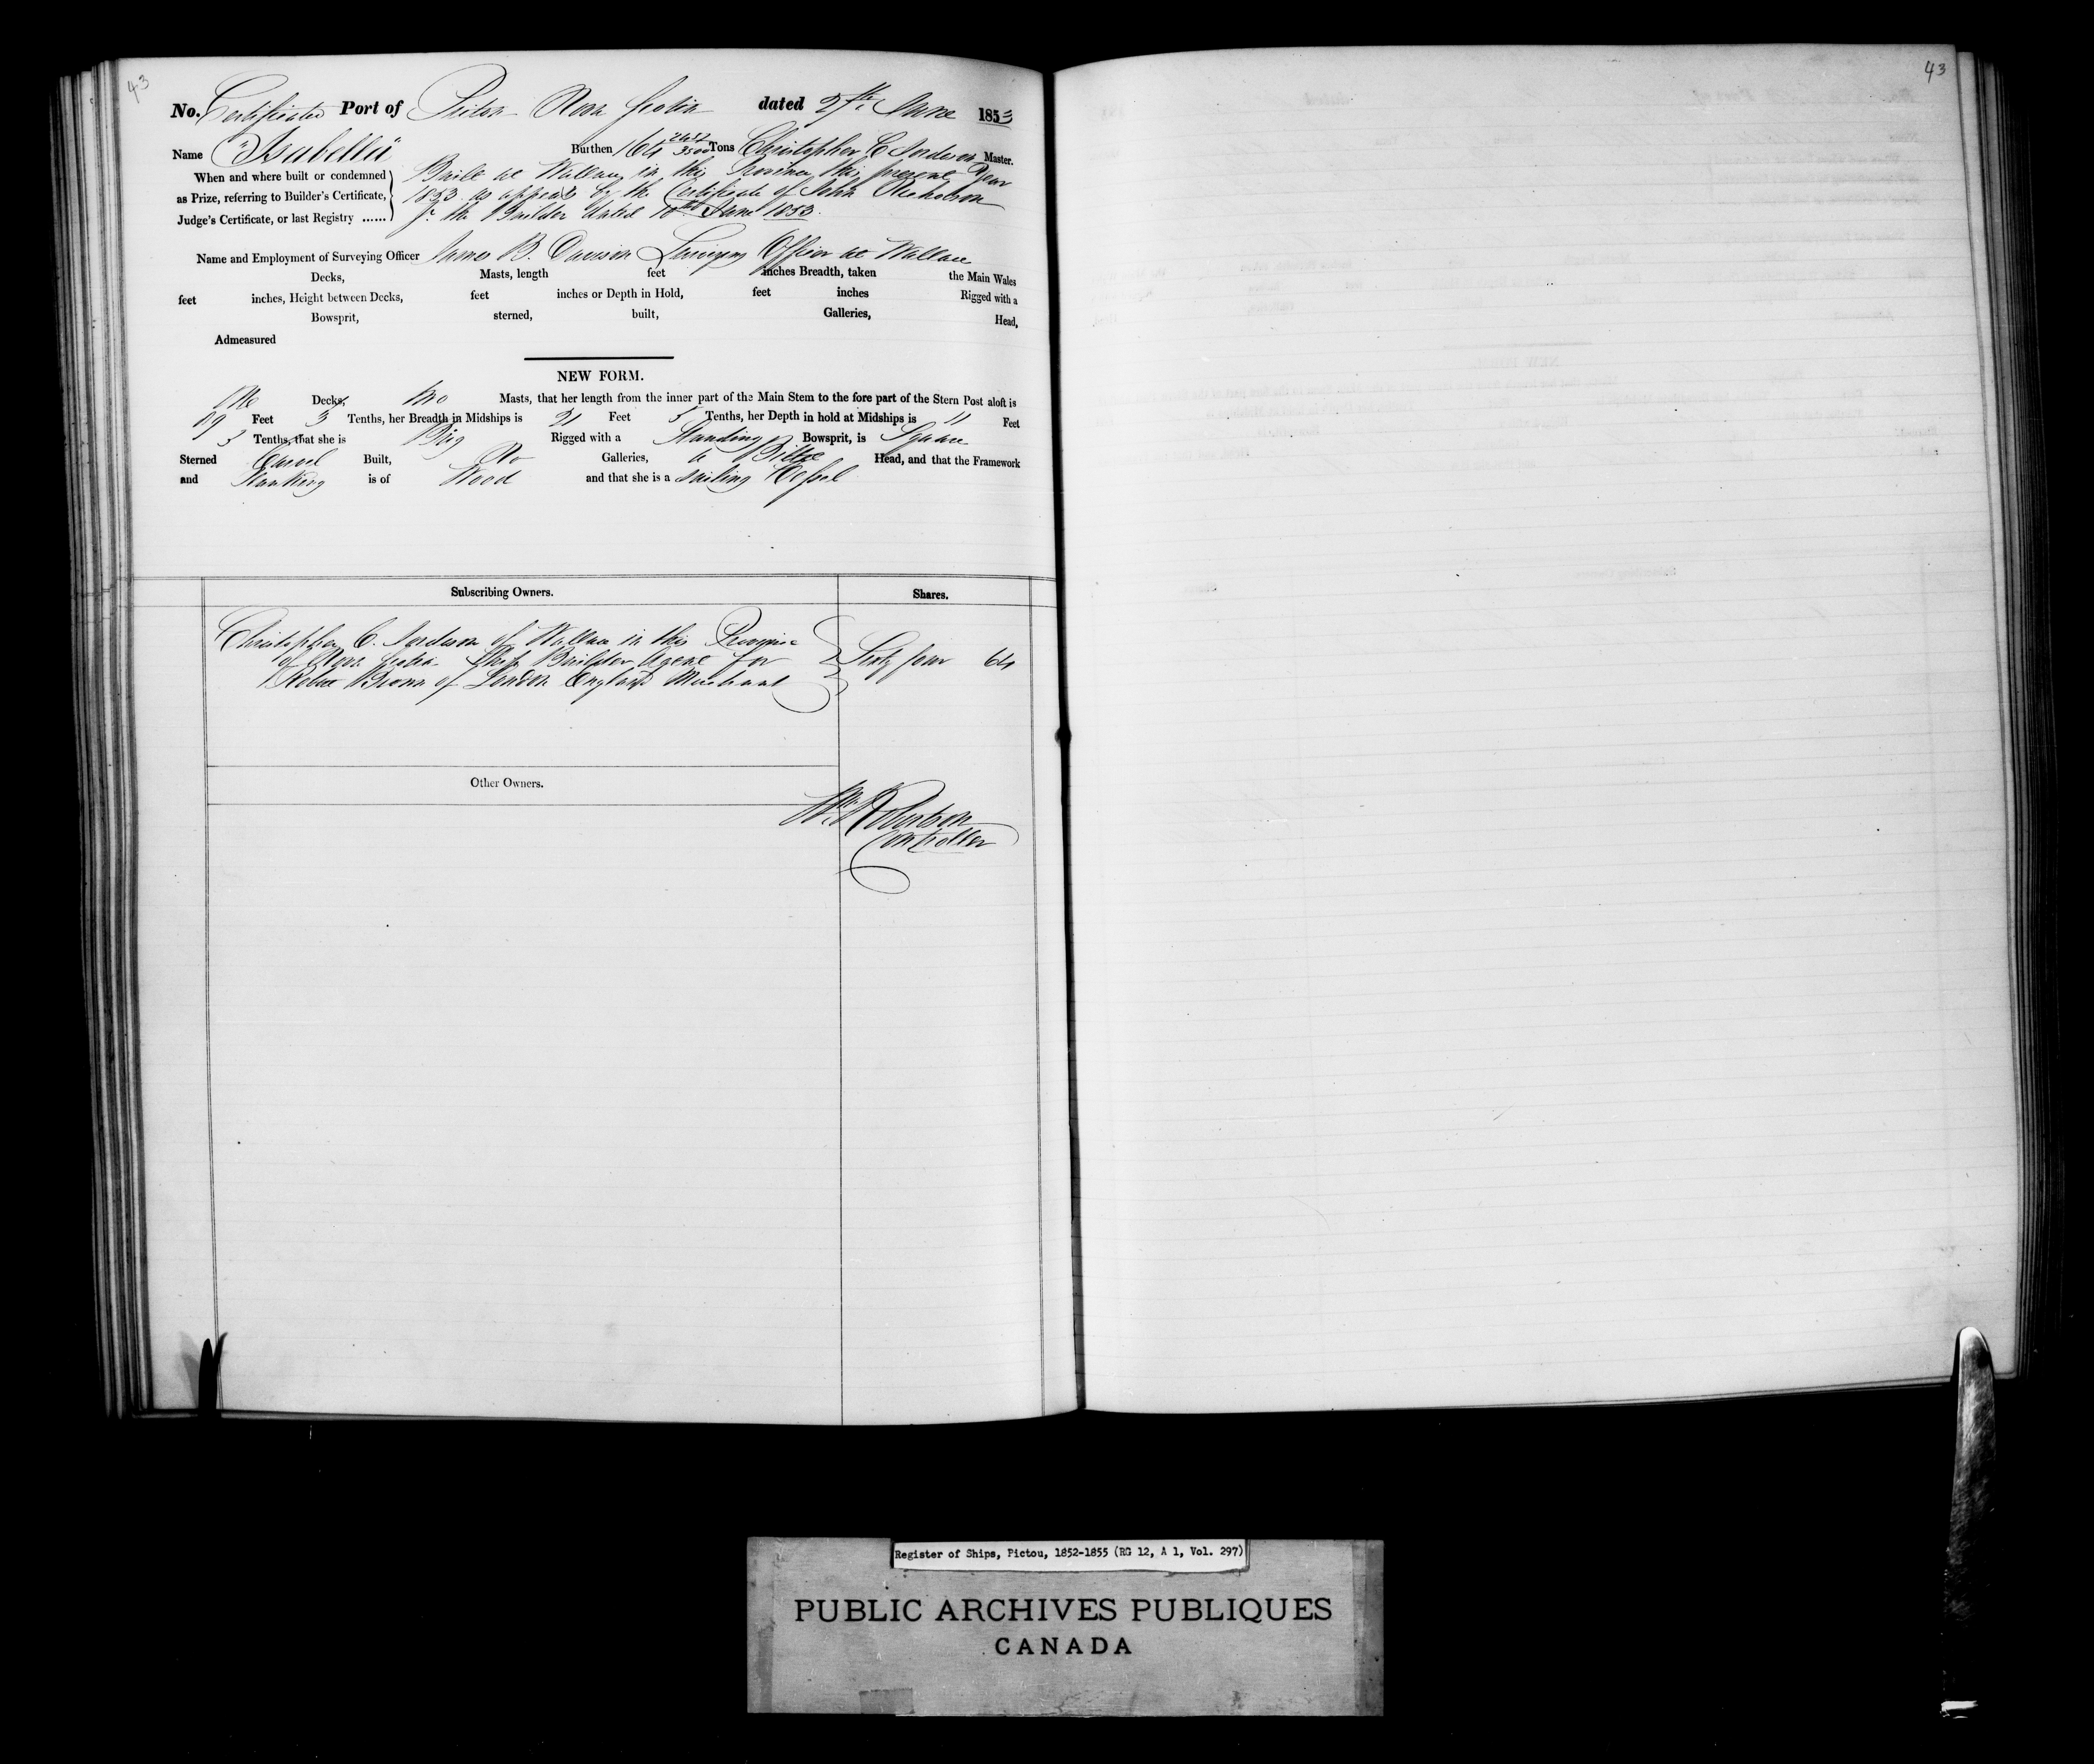 43
43
No. Certificate Port of Pictou Nova Scotia dated 27th June 1853
Name "Isabella" Burthen 164 2452/3500 Tons Christopher C Anderson Master.
When and where built or condemned Built at Wallace in this Province this present Year
as Prize, referring to Builder's Certificate, 1853 as appears by the Certificate of John Nicholson
Judge's Certificate, or last Registry ...... Jr the Builder dated 10th June 1853.
Name and Employment of Surveying Officer James B. Davison Surveying Officer at Wallace
Decks, Masts, length feet inches Breadth, taken the Main Wales
feet inches, Height between Decks, feet inches or Depth in Hold, feet inches Rigged with a
Bowsprit, sterned, built, Galleries, Head,
Admeasured
NEW FORM.
One Decks, two Masts, that her length from the inner part of the Main Stem to the fore part of the Stern Post aloft is
Feet 3 Tenths, her Breadth in Midships is 21 Feet 5 Tenths, her Depth in hold at Midships is 11 Feet
3 Tenths, that she is Brig Rigged with a Standing Bowsprit, is Square
Sterned Carvel Built, No Galleries, a Billet Head, and that the Framework
and Planking is of Wood and that she is a sailing Vessel
Subscribing Owners. Shares.
Christopher C. Anderson of Wallace in this Province
of Nova Scotia Ship Builder Agent for Sixty four 64
Brown of London England Merchant
Other Owners.
Wm Robertson
Controller
Register of Ships, Pictou, 1852-1855 (RG 12, A 1, Vol. 297)
PUBLIC ARCHIVES PUBLIQUES
CANADA